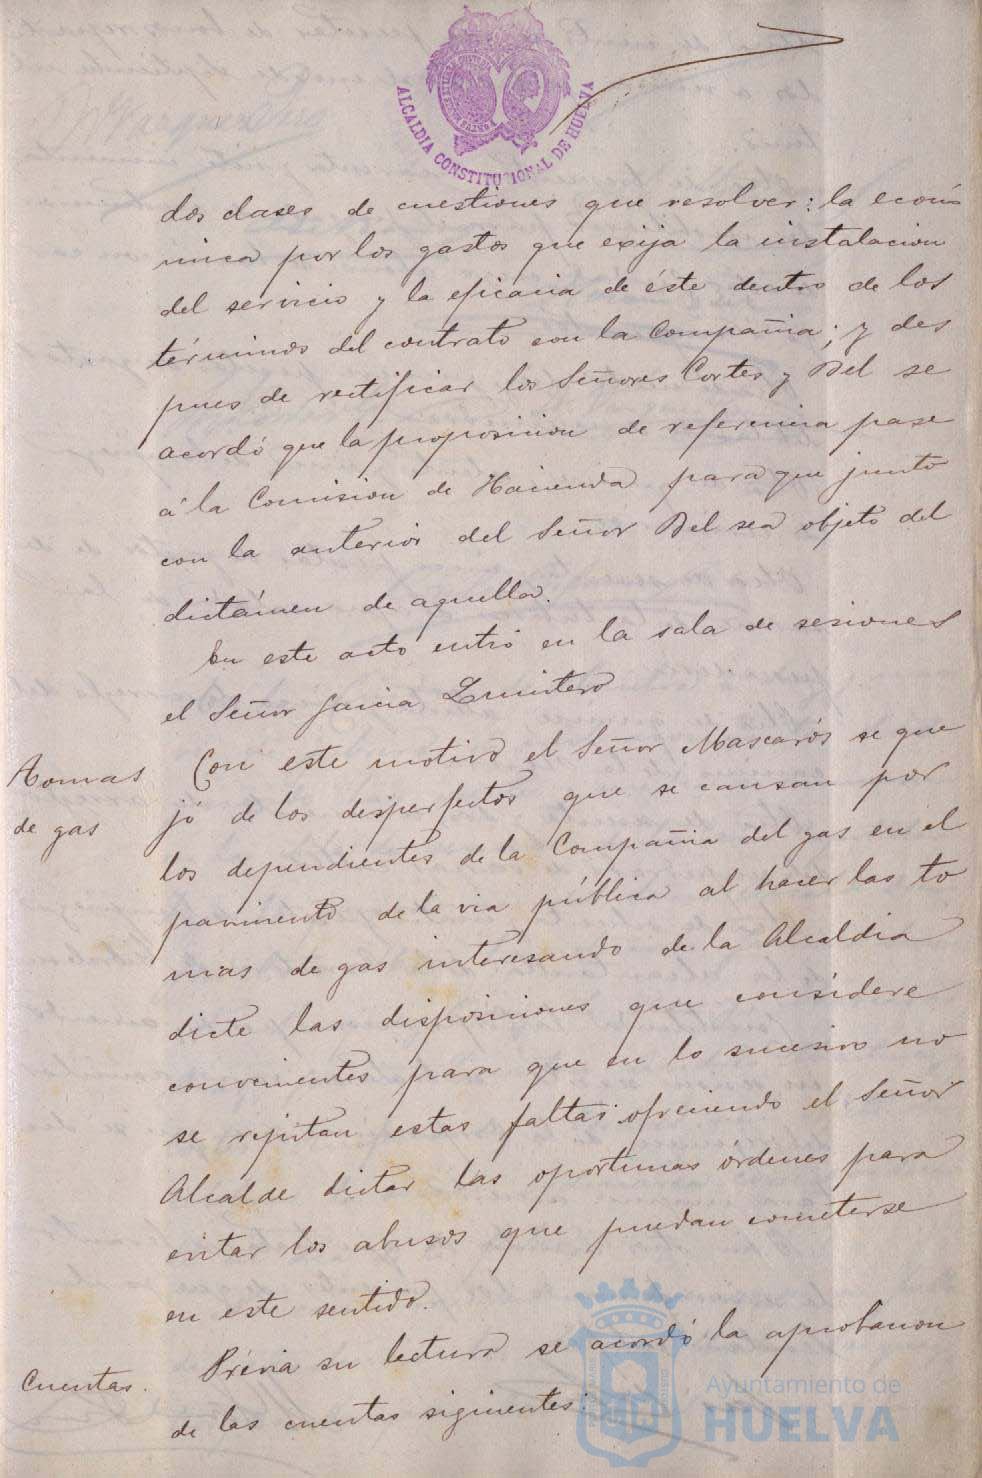 ALCALDIA CONSTITUCIONAL DE HUELVA
dos clases de cuestiones que resolver: la econó
mica por los gastos que exija la instalacion
del servicio y la eficacia de éste dentro de los
términos del contrato con la Compañia; y des
pues de rectificar los Señores Cortes y Del se
acordó que la proposicion de referencia pase
á la Comision de Hacienda para que junto
con la anterior del Señor Del sea objeto del
dictámen de aquella.
En este acto entró en la sala de sesiones
el Señor Garcia Quintero
Tomas
de gas
Con este motivo el Señor Mascarós se que
jó de los desperfectos que se causan por
los dependientes de la Compañia del gas en el
pavimento de la via pública al hacer las to
mas de gas interesando de la Alcaldia
dicte las disposiciones que considere
convenientes para que en lo sucesivo no
se repitan estas faltas ofreciendo el Señor
Alcalde dictar las oportunas órdenes para
evitar los abusos que puedan cometerse
en este sentido.
Cuentas.
Prévia su lectura se acordó la aprobacion
de las cuentas siguientes:
Ayuntamiento de
HUELVA